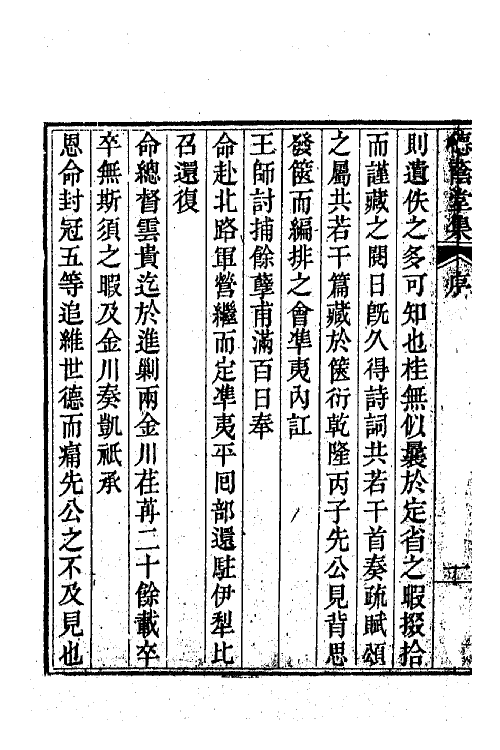 德蔭堂集 序
則遺佚之多可知也桂無似曩於定省之暇掇拾
而謹藏之閱日旣久得詩詞共若干首奏疏賦頌
之屬共若干篇藏於篋衍乾隆丙子先公見背思
發篋而編排之會準夷內訌
王師討捕餘孽甫滿百日奉
命赴北路軍營繼而定準夷平回部還駐伊犁比
召還復
命總督雲貴迄於進剿兩金川荏苒二十餘載卒
卒無斯須之暇及金川奏凱祗承
恩命封冠五等追維世德而痛先公之不及見也